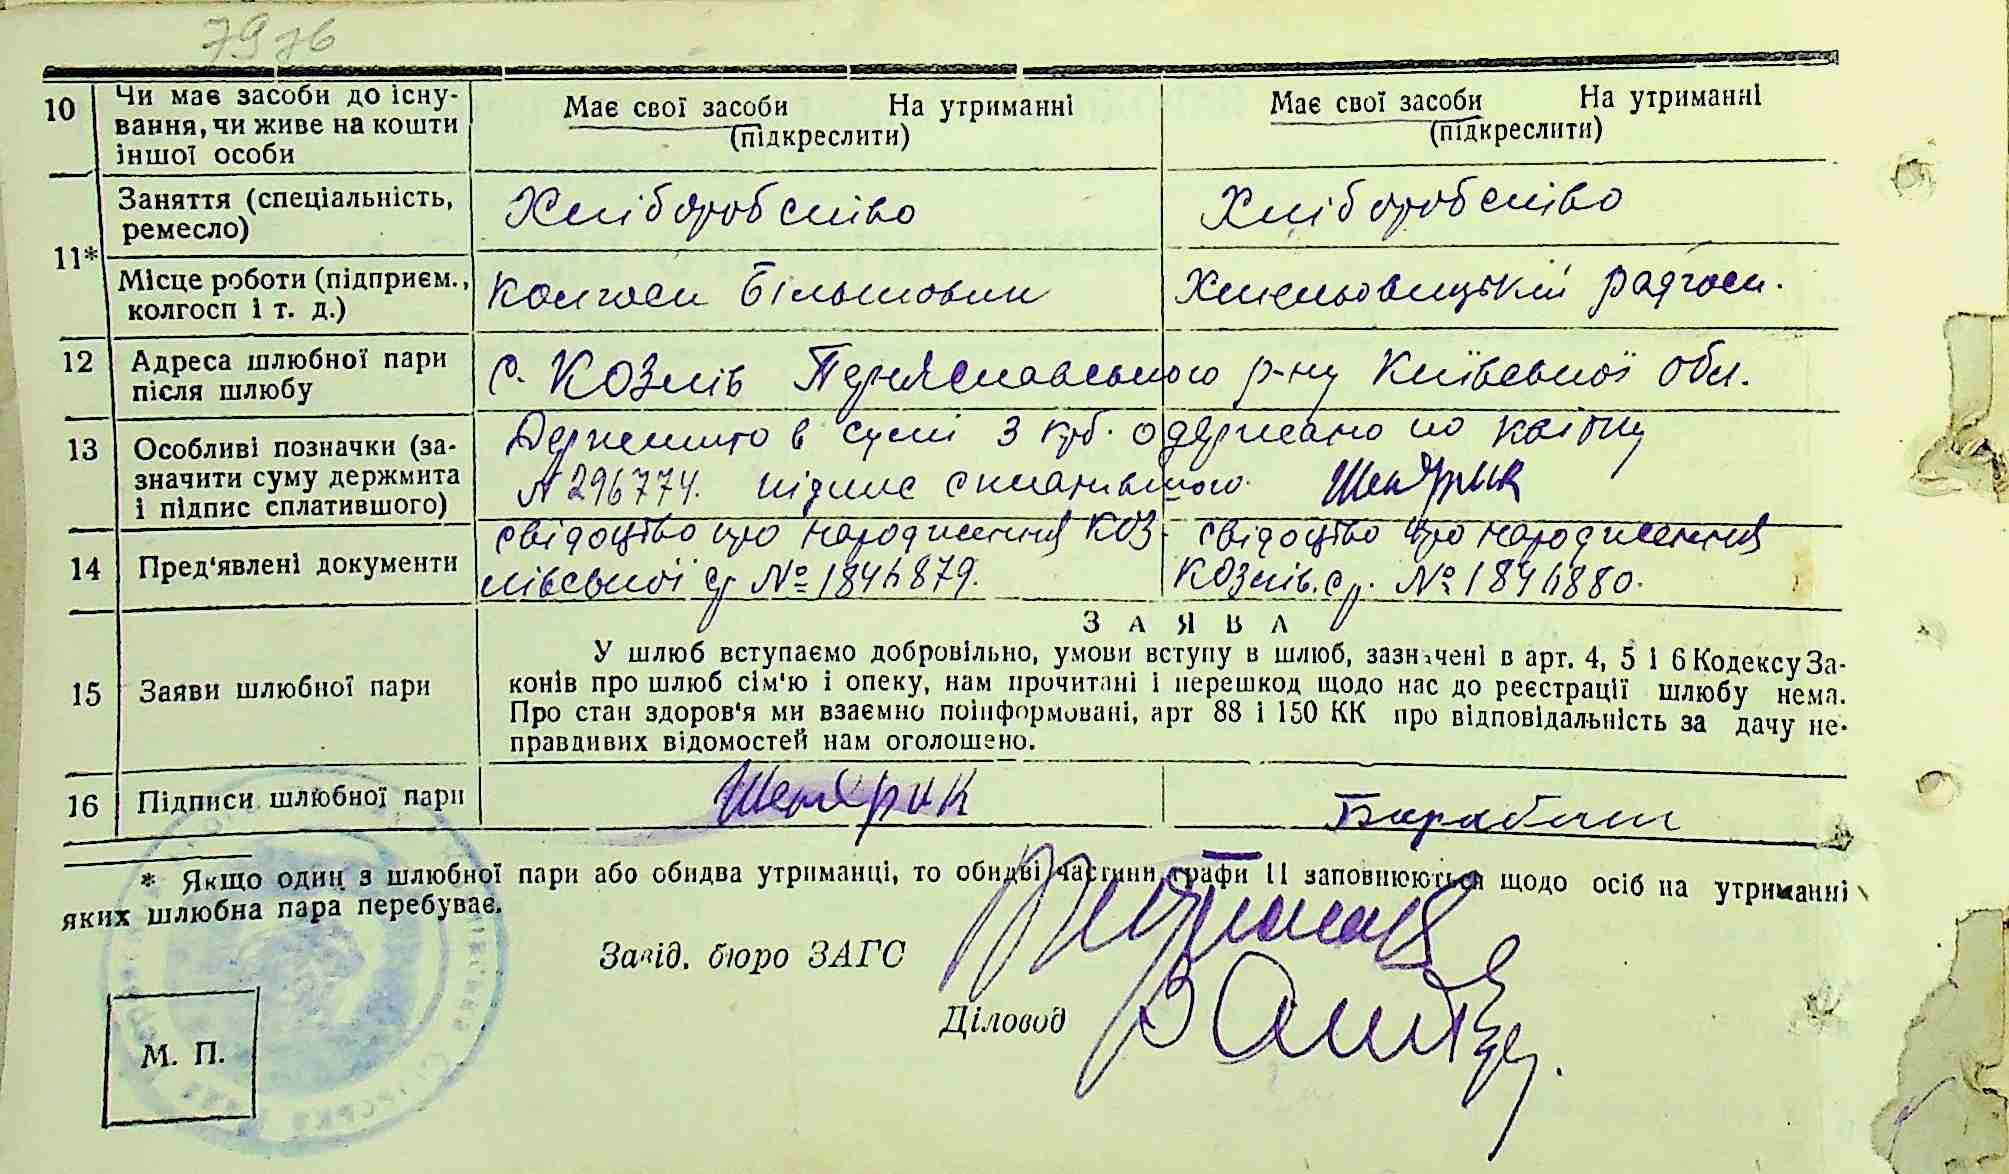 7976
10 Чи має засоби до існу-
вання, чи живе на кошти
іншої особи
Має свої засоби На утриманні
(підкреслити)
Має свої засоби На утриманні
(підкреслити)
11* Заняття (спеціальність,
ремесло)
Хліборобство
Хліборобство
Місце роботи (підприєм.,
колгосп і т. д.)
колгосп Більшовик
радгосп.
12 Адреса шлюбної пари
після шлюбу
с. Козлів Переяславського р-ну Київської обл.
13 Особливі позначки (за-
значити суму держмита
і підпис сплатившого)
Держмито в сумі 3 крб. одержано по квітку
№ 296774. підпис сплатившого
14 Пред'явлені документи
свідоцтво про народження Коз-
лівської ср № 1844879.
свідоцтво про народження
Козлів. ср. № 1844880.
15 Заяви шлюбної пари
ЗАЯВА
У шлюб вступаємо добровільно, умови вступу в шлюб, зазначені в арт. 4, 5 і 6 Кодексу За-
конів про шлюб сім'ю і опеку, нам прочитані і перешкод щодо нас до реєстрації шлюбу нема.
Про стан здоров'я ми взаємно поінформовані, арт 88 і 150 КК про відповідальність за дачу не-
правдивих відомостей нам оголошено.
16 Підписи шлюбної пари
Барабаш
* Якщо один з шлюбної пари або обидва утриманці, то обидві частини графи 11 заповнюються щодо осіб на утриманні
яких шлюбна пара перебуває.
Завід. бюро ЗАГС
Діловод
М. П.